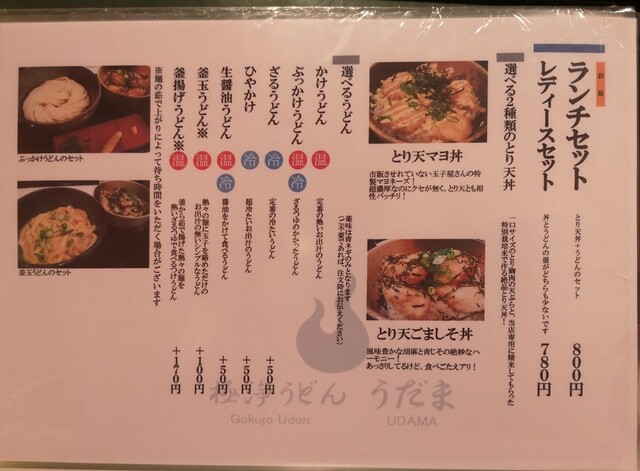 お昼
ランチセット
とり天丼+うどんのセット
800円
レディースセット
丼とうどんの量がどちらも少ないです
780円
選べる2種類のとり天丼
一口サイズのとり胸肉の天ぷらと、当店専用に精米してもらった
特別栽培米で作る絶品とり天丼!
とり天マヨ丼
市販させれていない玉子屋さんの特
製マヨネーズ!
超濃厚なのにクセが無く、とり天とも相
性バッチリ!
とり天ごましそ丼
風味豊かな胡麻と青じその絶妙なハ
ーモニー!
あっさりしてるけど、食べごたえアリ!
選べるうどん
薬味は青ネギのみとなります
(ご不要であれば、注文時にお伝えください)
かけうどん
温
定番の熱いお出汁のうどん
ぶっかけうどん
温
冷
ざるつゆのかかったうどん
ざるうどん
冷
定番の冷たいうどん
+50円
ひやかけ
冷
超冷たいお出汁のうどん
+50円
生醤油うどん
温
冷
醤油をかけて食べるうどん
+50円
釜玉うどん※
温
熱々の麺に玉子を絡めただけの
お出汁の無いシンプルなうどん
+100円
釜揚げうどん※
温
釜から茹で揚げた熱々の麺を
熱いざるつゆで食べるつけうどん
+170円
※麺の茹で上がりによって待ち時間をいただく場合がございます
ぶっかけうどんのセット
釜玉うどんのセット
極浄うどん うだま
Gokujo Udon UDAMA